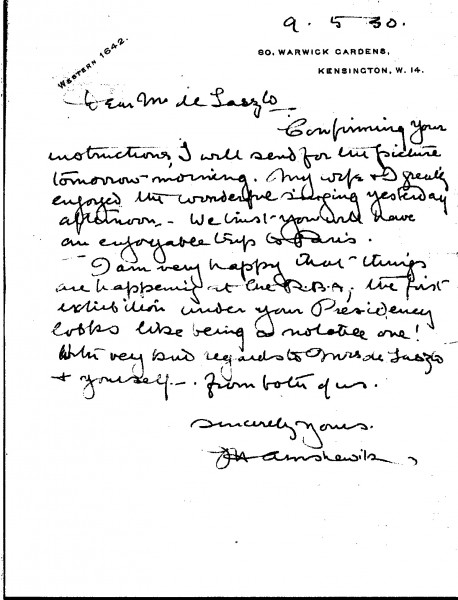 9. 5 30.
WESTERN 1642.
60. WARWICK GARDENS,
KENSINGTON, W. 14.
Dear Mr de Laszlo
Confirming your
instructions, I will send for the picture
tomorrow morning. My wife & I greatly
enjoyed the wonderful singing yesterday
afternoon. - We trust you will have
an enjoyable trip to Paris.
I am very happy that things
are happening at the R.B.A; the first
exhibition under your Presidency
looks like being a notable one!
With very kind regards to Mrs de Laszlo
& yourself -. from both of us.
Sincerely yours.
Amshewitz